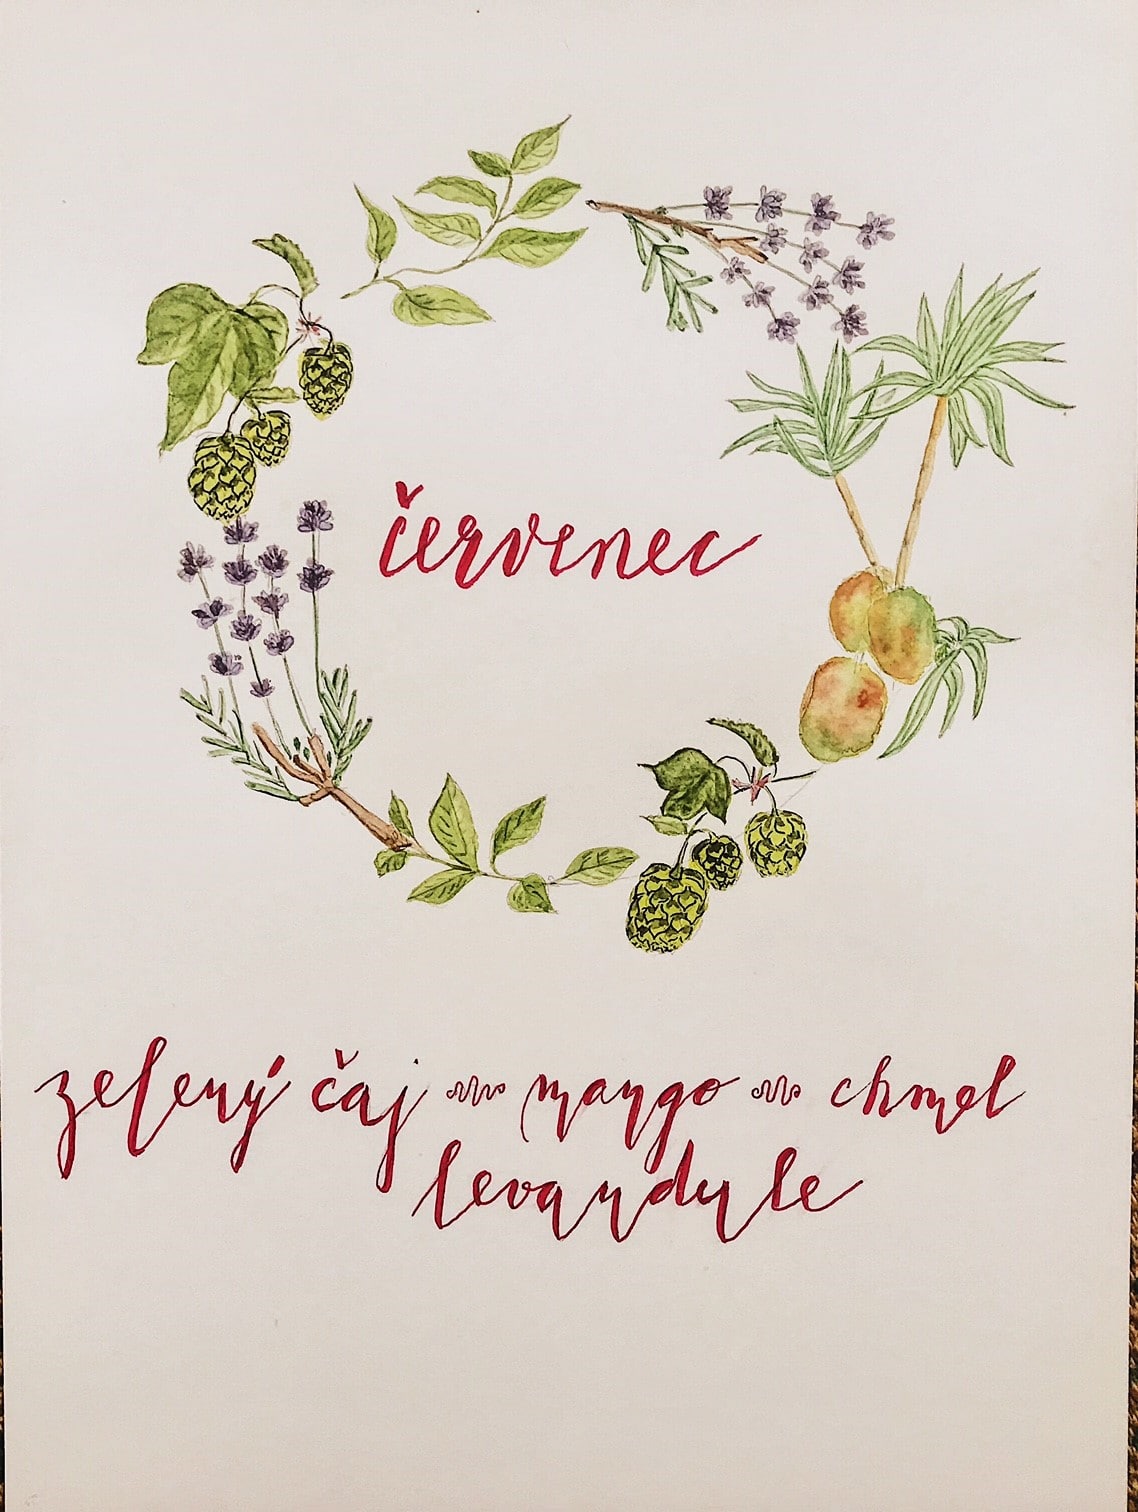 červenec
zelený čaj mango chmel
levandule